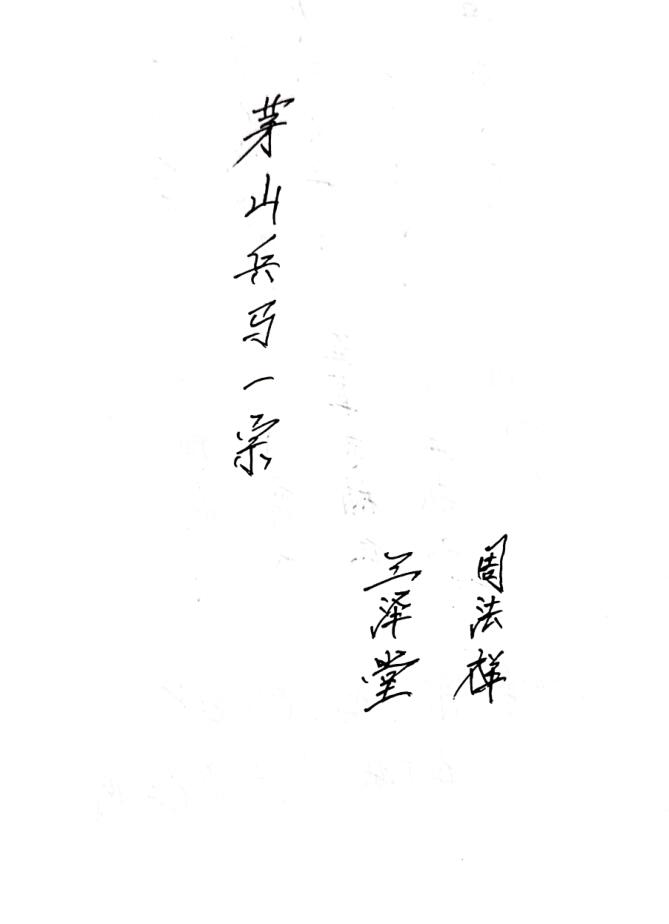 茅山兵马一宗
兰泽堂
周法祥